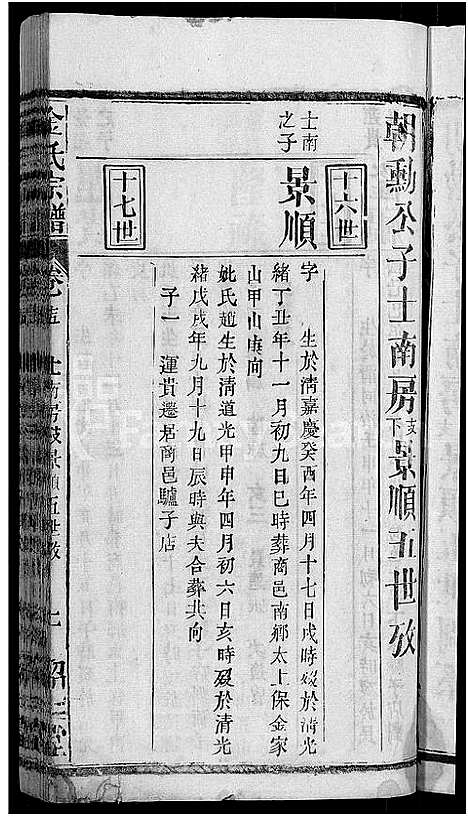 朝勳公子士南房支下景順五世攷
十六世
士南之子
景順
字 生於清嘉慶癸酉年四月十七日戌時歿於清光
緒丁丑年十一月初九日巳時葬商邑南鄉太上保金家
山甲山庚向
妣氏趙生於清道光甲申年四月初六日亥時歿於清光
緒戊戌年九月十九日辰時與夫合葬共向
子一 運貴遷居商邑驢子店
十七世
金氏宗譜
士南房支景順五世攷
七